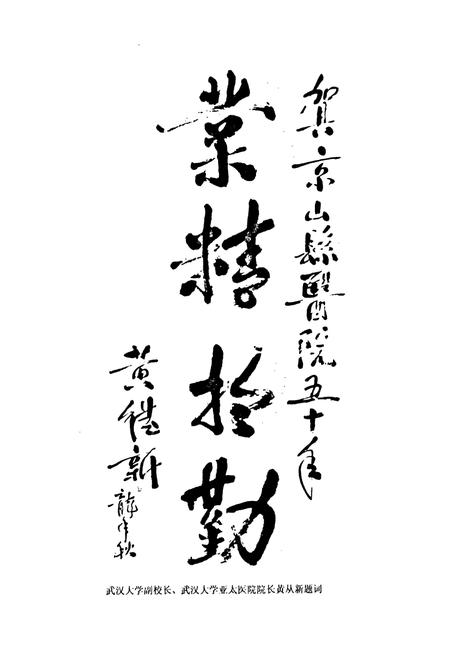 賀京山縣醫院五十年
業精扵勤
黄從新
龍年秋
武汉大学副校长、武汉大学亚太医院院长黄从新题词